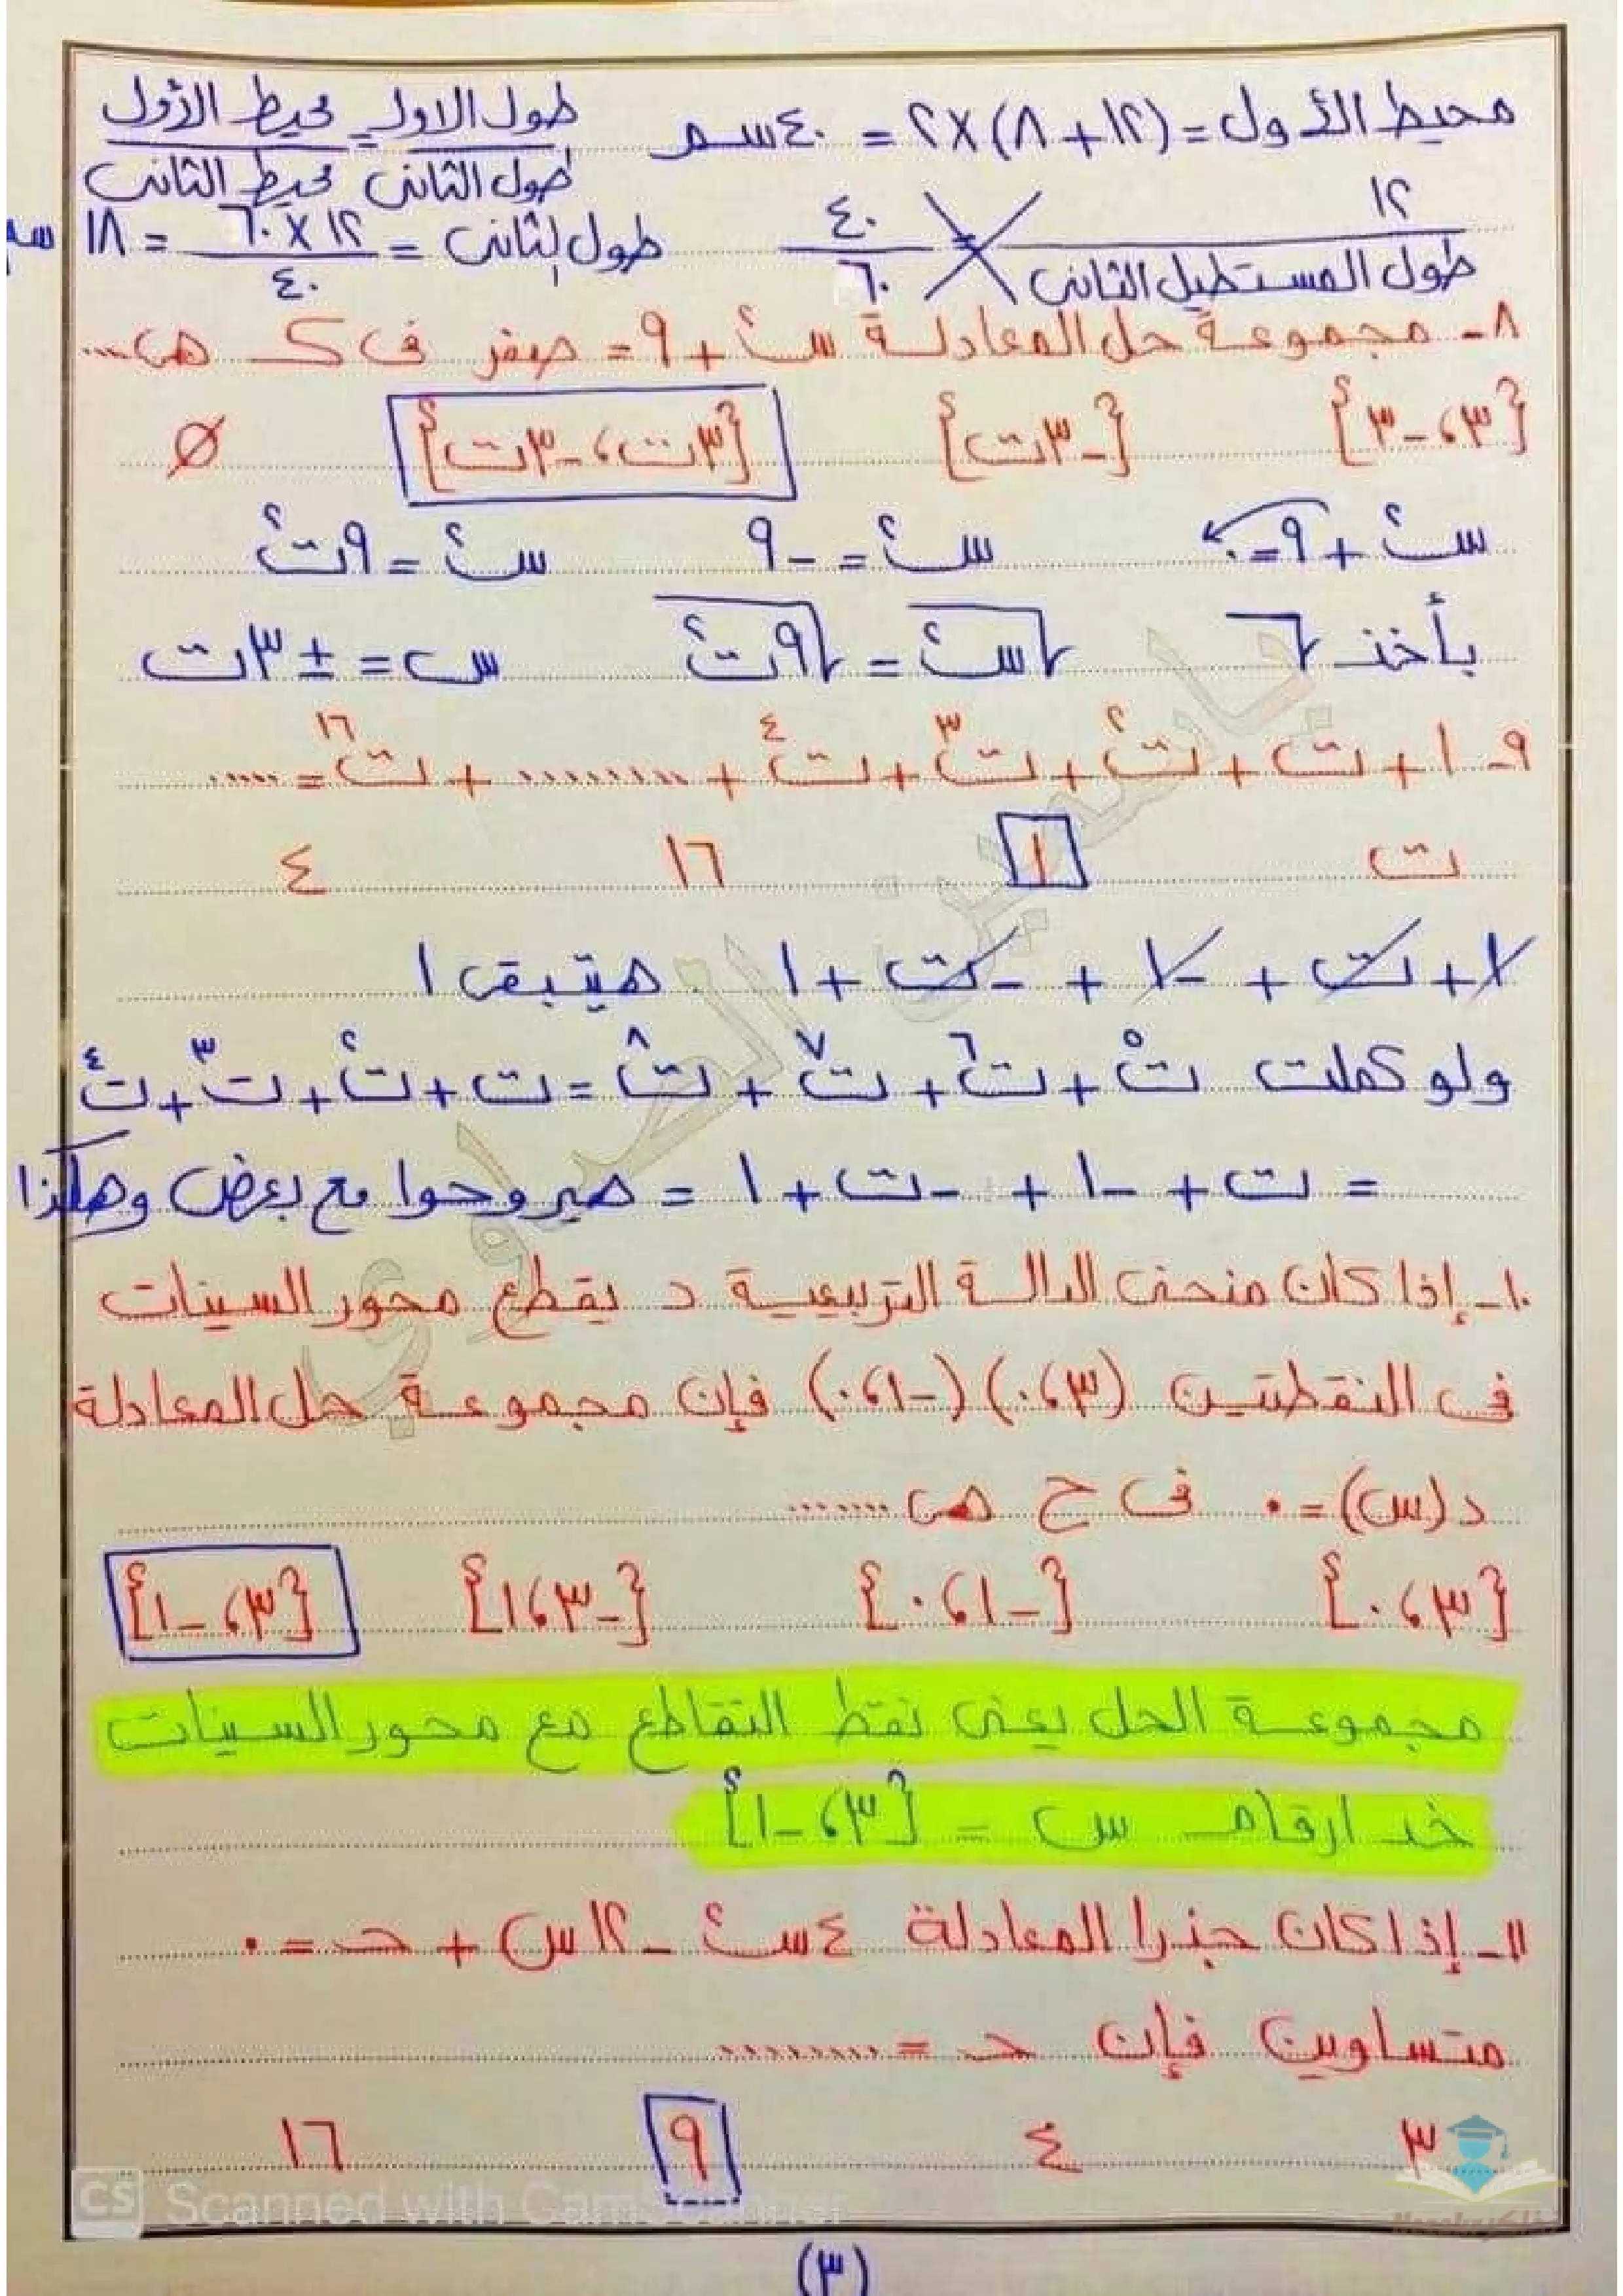 محيط الأول = (١٢ + ٨) × ٢ = ٤٠ سم    طول الاول / طول الثانى = محيط الأول / محيط الثانى
١٢ / طول المستطيل الثانى = ٤٠ / ٦٠    طول الثانى = ١٢ × ٦٠ / ٤٠ = ١٨ سم
٨- مجموعة حل المعادلة س٢ + ٩ = صفر فى ك هى ....
{٣، -٣}    {-٣ت}    {٣ت، -٣ت}    ∅
س٢ + ٩ = ٠    س٢ = -٩    س٢ = ٩ت٢
بأخذ √    √س٢ = √٩ت٢    س = ± ٣ت
٩- ١ + ت + ت٢ + ت٣ + ت٤ + ......... + ت١٦ = .....
ت    ١    ١٦    ٤
١ + ت + -١ + -ت + ١    هيتبقى ١
ولو كملت ت٥ + ت٦ + ت٧ + ت٨ = ت + ت٢ + ت٣ + ت٤
= ت + -١ + -ت + ١ = هيروحوا مع بعض وهكذا
١٠- إذا كان منحنى الدالة التربيعية د يقطع محور السينات
فى النقطتين (٣، ٠) (-١، ٠) فإن مجموعة حل المعادلة
د(س) = ٠ فى ح هى .......
{٣، ٠}    {-١، ٠}    {-٣، ١}    {٣، -١}
مجموعة الحل يعنى نقط التقاطع مع محور السينات
خد ارقام س = {٣، -١}
١١- إذا كان جذرا المعادلة ٤س٢ - ١٢س + حـ = ٠
متساوين فإن حـ = .........
٣    ٤    ٩    ١٦
CS Scanned with CamScanner
(٣)